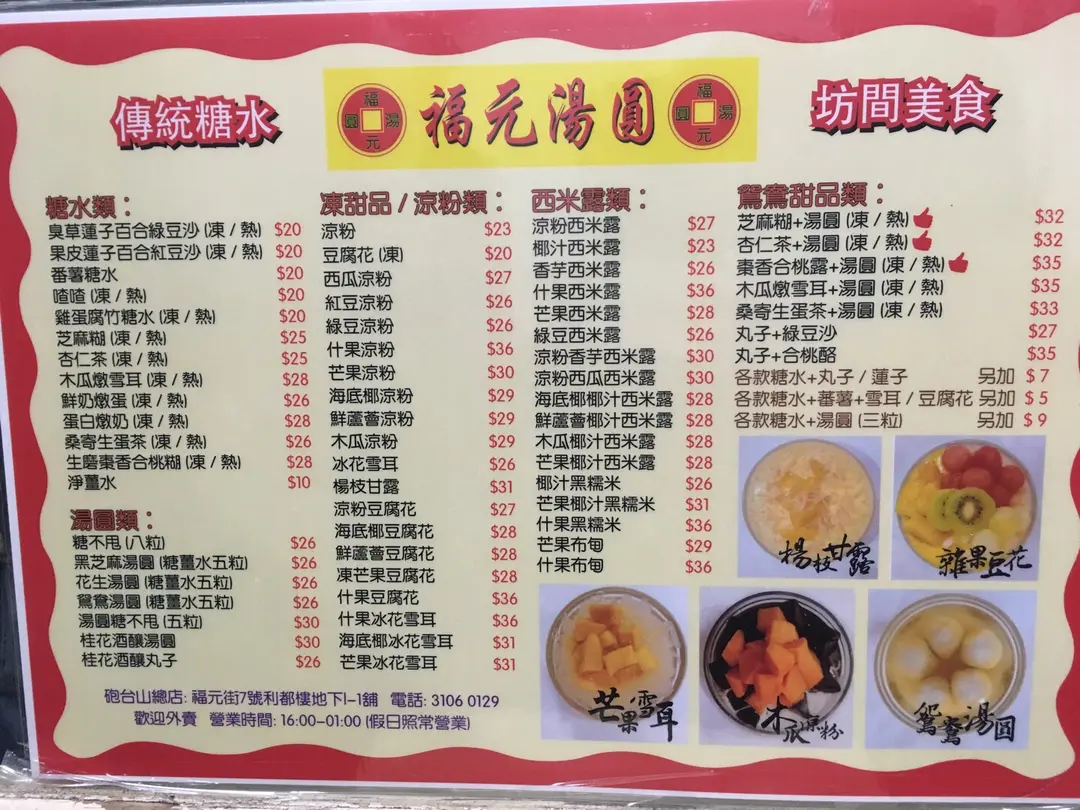 傳統糖水
福元湯圓
福元湯圓
福元湯圓
坊間美食
糖水類：
臭草蓮子百合綠豆沙 (凍 / 熱) $20
果皮蓮子百合紅豆沙 (凍 / 熱) $20
番薯糖水 $20
喳喳 (凍 / 熱) $20
雞蛋腐竹糖水 (凍 / 熱) $20
芝麻糊 (凍 / 熱) $25
杏仁茶 (凍 / 熱) $25
木瓜燉雪耳 (凍 / 熱) $28
鮮奶燉蛋 (凍 / 熱) $26
蛋白燉奶 (凍 / 熱) $28
桑寄生蛋茶 (凍 / 熱) $26
生磨棗香合桃糊 (凍 / 熱) $28
淨薑水 $10
湯圓類：
糖不甩 (八粒) $26
黑芝麻湯圓 (糖薑水五粒) $26
花生湯圓 (糖薑水五粒) $26
鴛鴦湯圓 (糖薑水五粒) $26
湯圓糖不甩 (五粒) $30
桂花酒釀湯圓 $30
桂花酒釀丸子 $26
凍甜品 / 涼粉類：
涼粉 $23
豆腐花 (凍) $20
西瓜涼粉 $27
紅豆涼粉 $26
綠豆涼粉 $26
什果涼粉 $36
芒果涼粉 $30
海底椰涼粉 $29
鮮蘆薈涼粉 $29
木瓜涼粉 $29
冰花雪耳 $26
楊枝甘露 $31
涼粉豆腐花 $27
海底椰豆腐花 $28
鮮蘆薈豆腐花 $28
凍芒果豆腐花 $28
什果豆腐花 $36
什果冰花雪耳 $36
海底椰冰花雪耳 $31
芒果冰花雪耳 $31
西米露類：
涼粉西米露 $27
椰汁西米露 $23
香芋西米露 $26
什果西米露 $36
芒果西米露 $28
綠豆西米露 $26
涼粉香芋西米露 $30
涼粉西瓜西米露 $30
海底椰椰汁西米露 $28
鮮蘆薈椰汁西米露 $28
木瓜椰汁西米露 $28
芒果椰汁西米露 $28
椰汁黑糯米 $26
芒果椰汁黑糯米 $31
什果黑糯米 $36
芒果布甸 $29
什果布甸 $36
鴛鴦甜品類：
芝麻糊+湯圓 (凍 / 熱) $32
杏仁茶+湯圓 (凍 / 熱) $32
棗香合桃露+湯圓 (凍 / 熱) $35
木瓜燉雪耳+湯圓 (凍 / 熱) $35
桑寄生蛋茶+湯圓 (凍 / 熱) $33
丸子+綠豆沙 $27
丸子+合桃酪 $35
各款糖水+丸子 / 蓮子 另加 $ 7
各款糖水+蕃薯+雪耳 / 豆腐花 另加 $ 5
各款糖水+湯圓 (三粒) 另加 $ 9
楊枝甘露
雜果豆花
芒果雪耳
木瓜涼粉
鴛鴦湯圓
砲台山總店: 福元街7號利都樓地下I-1舖 電話: 3106 0129
歡迎外賣 營業時間: 16:00-01:00 (假日照常營業)